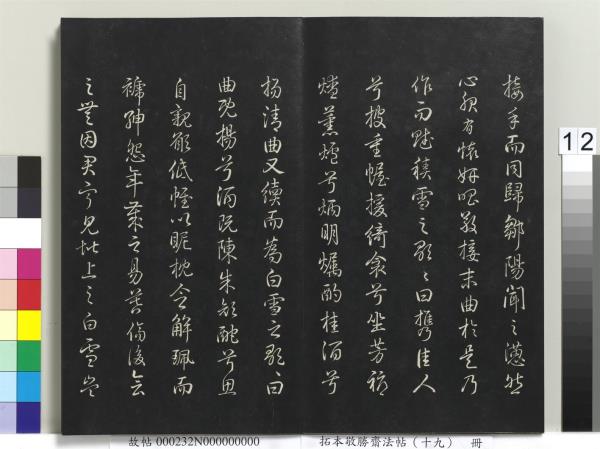 接手而同歸鄒陽聞之懣然
心服有懷妍唱敬接末曲於是乃
作而賦積雪之歌〻曰攜佳人
兮披重幄援綺衾兮坐芳褥
燎薰爐兮炳明燭酌桂酒兮
揚清曲又續而為白雪之歌〻曰
曲既揚兮酒既陳朱顏酡兮思
自親願低帷以昵枕念解珮而
褫紳怨年歲之易暮傷後會
之無因君寧見階上之白雪豈
12
故帖 000232N000000000
拓本敬勝齋法帖（十九） 冊